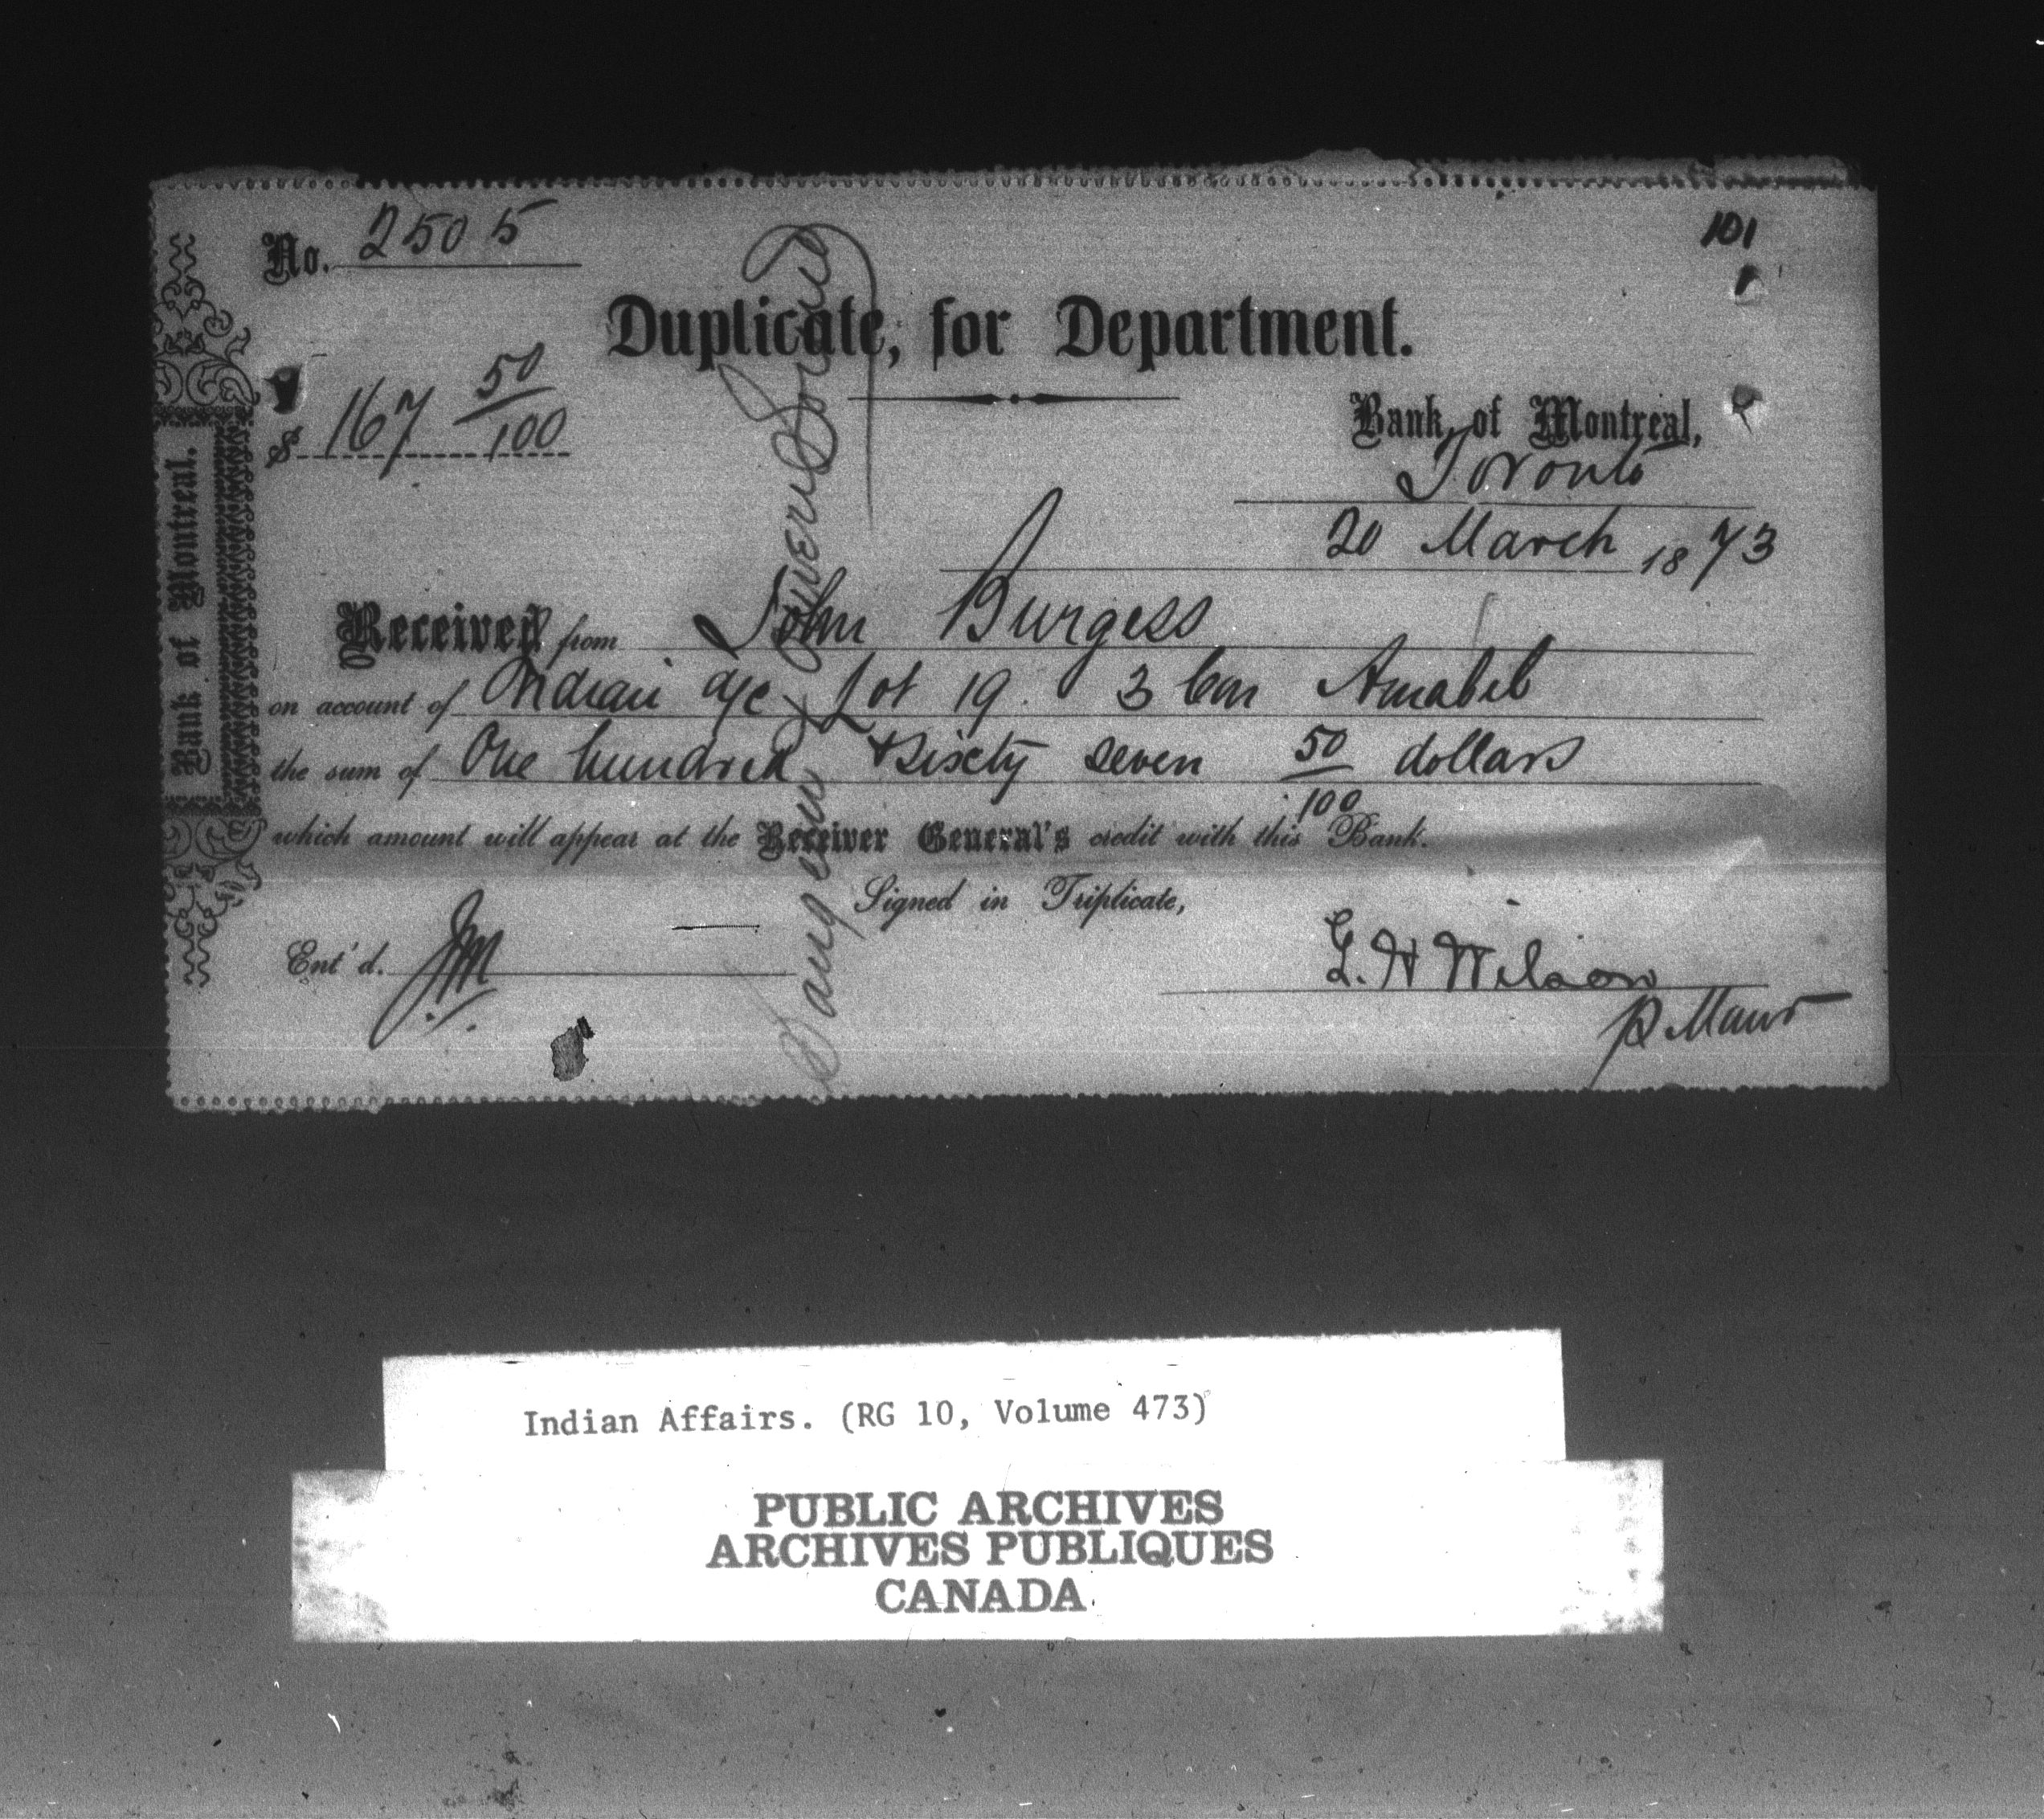 No. 2505
101
Duplicate, for Department.
$ 167 50/100
Bank of Montreal,
Toronto
20 March 1873
Received from John Burgess
on account of Indian a/c Lot 19. 3 Con Amabel
the sum of One hundred & Sixty seven 50/100 dollars
which amount will appear at the Receiver General's credit with this Bank.
Signed in Triplicate,
Ent'd. JM
G. H Wilson
p Manr
Bank of Montreal.
Saugeen & Owen Sound
Indian Affairs. (RG 10, Volume 473)
PUBLIC ARCHIVES
ARCHIVES PUBLIQUES
CANADA